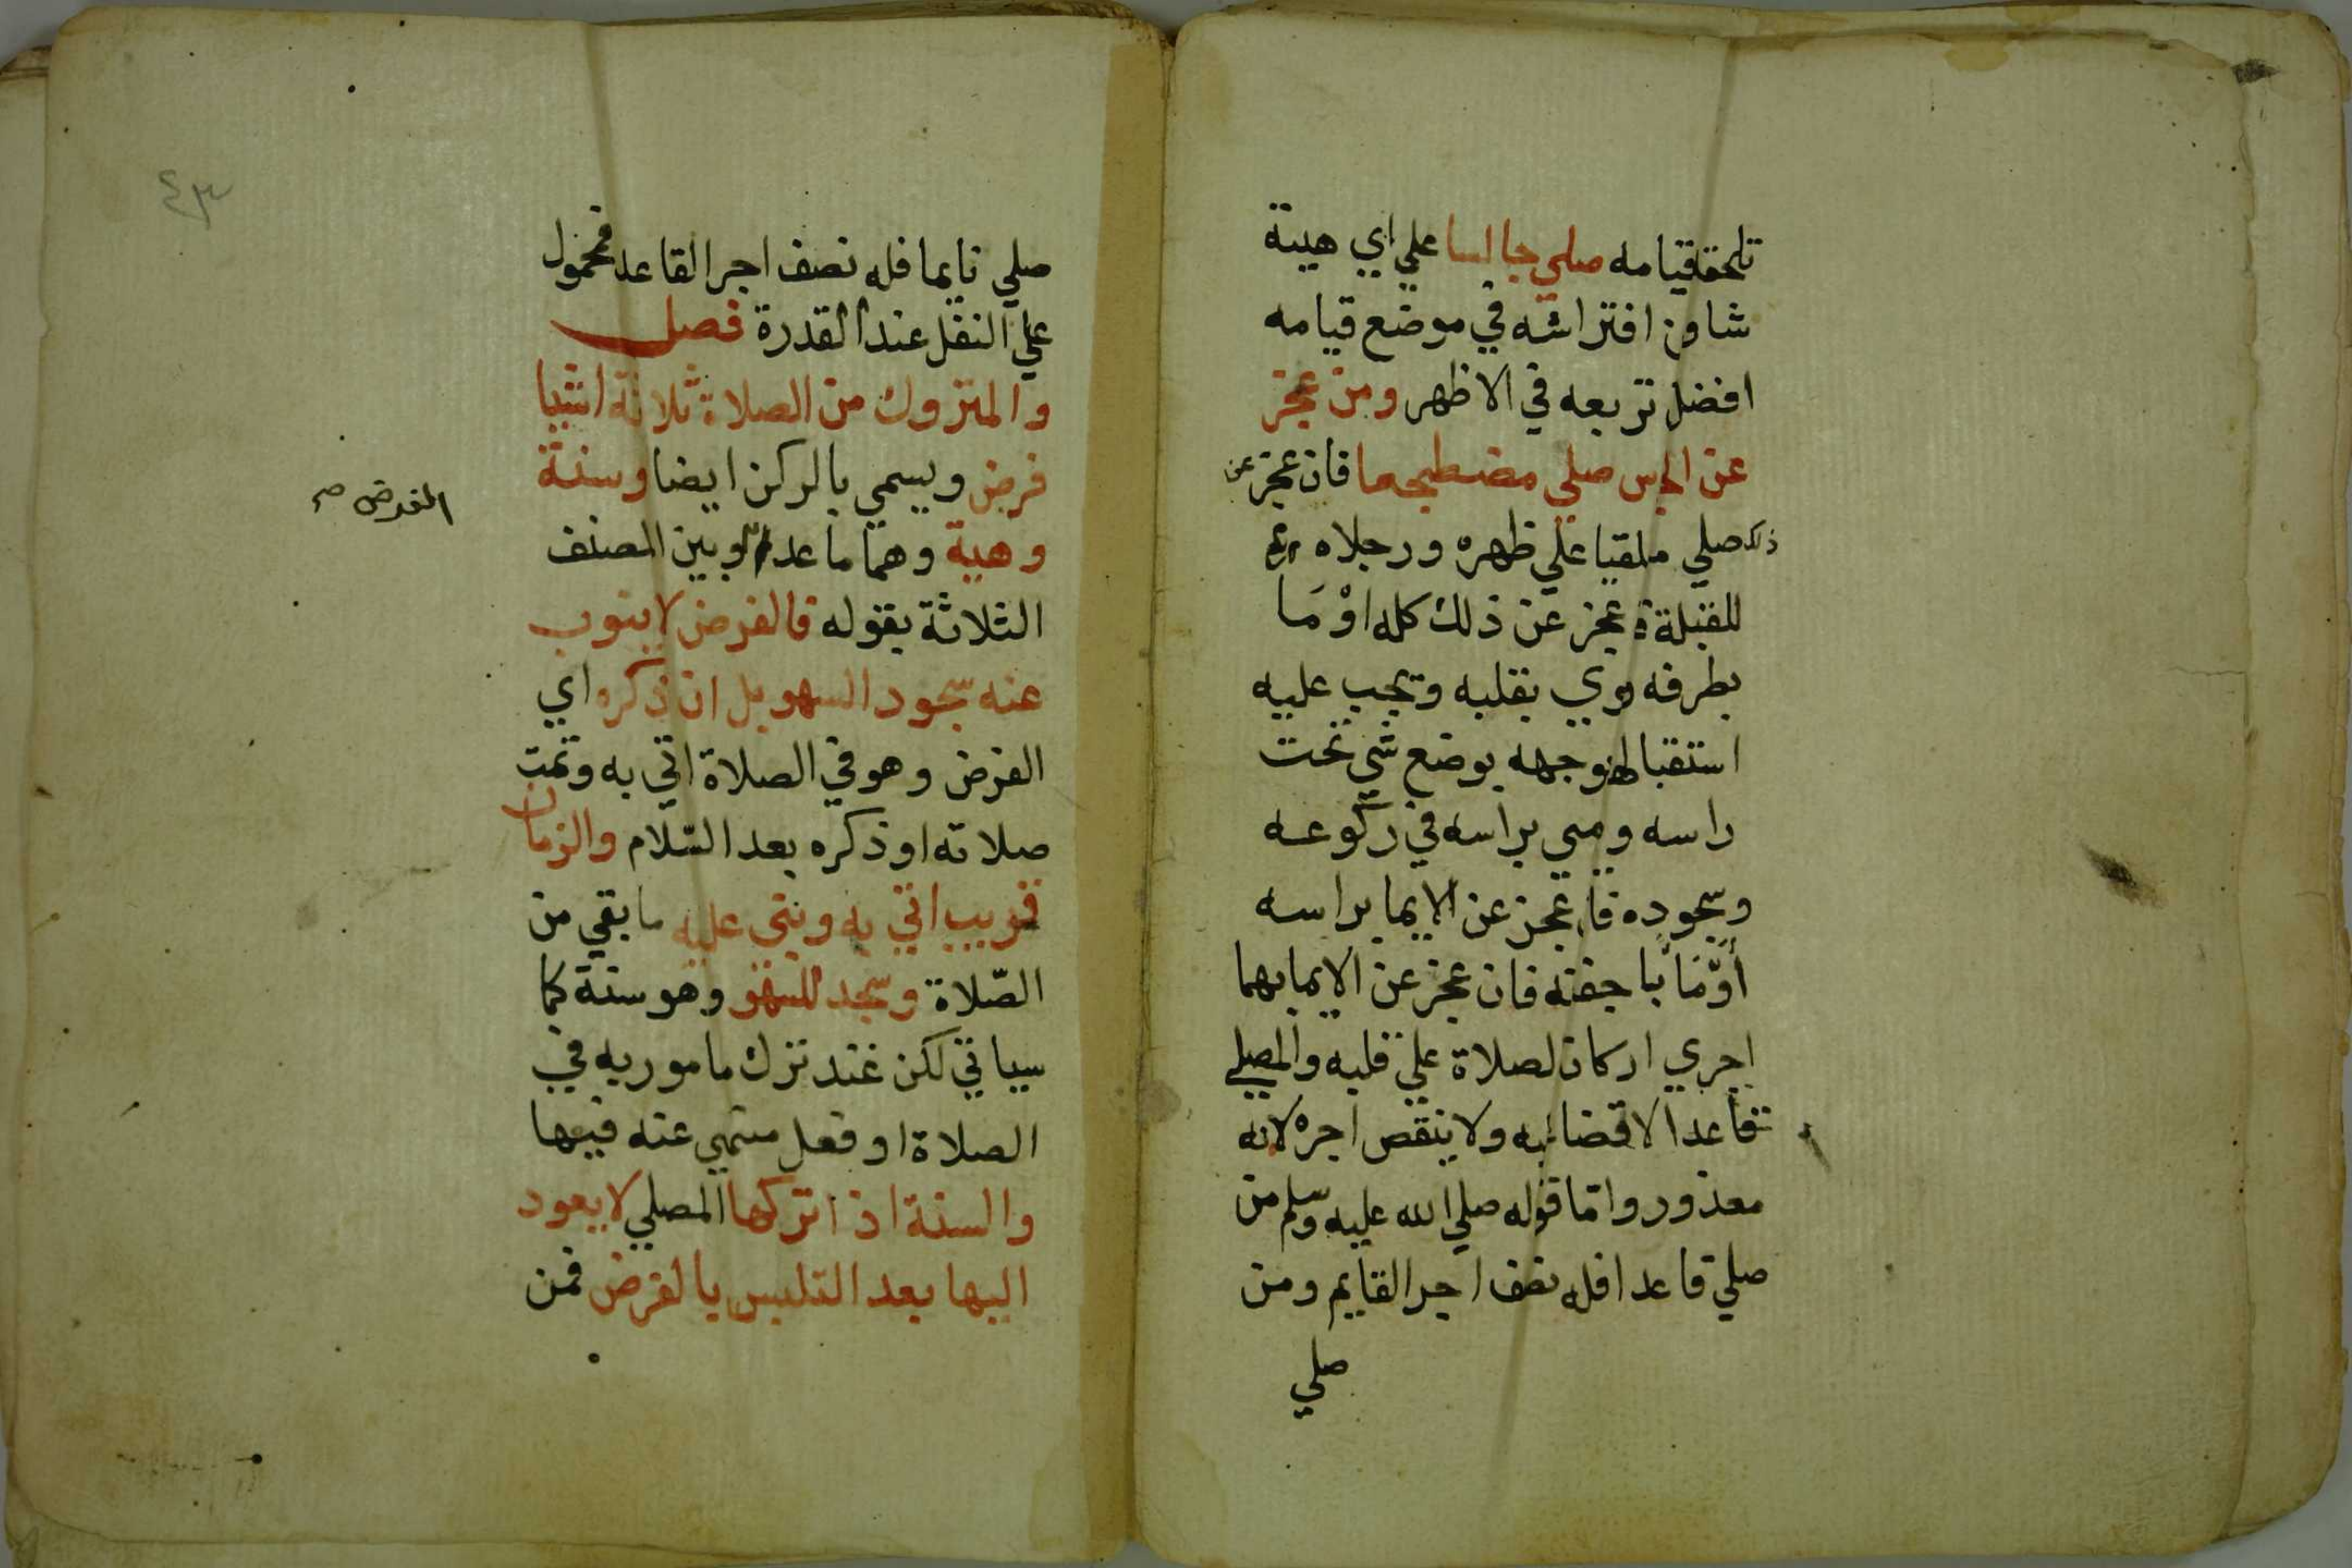 تلحقه قيامه صلي جالسا علي اي هيية
شا ومن افتراشه في موضع قيامه
افضل تربعه في الاظهر ومن عجز
عن الجلس صلي مضطجعا فان عجز عن
ذلك صلي ملقيا علي ظهره ورجلاه
للقبلة عجز عن ذلك كله اوْمَا
بطرفه نوي بقلبه ويجب عليه
استقبالها بوجهه بوضع شي تحت
راسه ومي براسه في ركوعه
وسجوده فان عجز عن الايما براسه
أَوْمَأ با جفنه فان عجز عن الايما بهما
اجري اركان لصلاة علي قلبه والمصلي
قاعدا لا قضا عليه ولا ينقص اجره لانه
معذور واما قوله صلي الله عليه وسلم من
صلي قاعدا فله نصف اجر القايم ومن
صلي
٤٣
صلي نايما فله نصف اجر القاعد فمحمول
علي النفل عند القدرة فصل
والمتروك من الصلاة ثلاثة اشيا
فرض ويسمي بالركن ايضا وسنة
وهيية وهما ما عدا وبين المصنف
الفرض صح
الثلاثة بقوله فالفرض لا ينوب
عنه سجود السهو بل ان ذكره اي
الفرض وهو في الصلاة اتي به وتمت
صلاته او ذكره بعد السّلام والزمان
قريب اتي به وبني عليه ما بقي من
الصّلاة وسجد للسهو وهو سنة كما
سياتي لكن عند ترك مامور به في
الصلاة او فعل منهي عنه فيها
والسنة اذا تركها المصلي لا يعود
اليها بعد التلبس بالفرض فمن